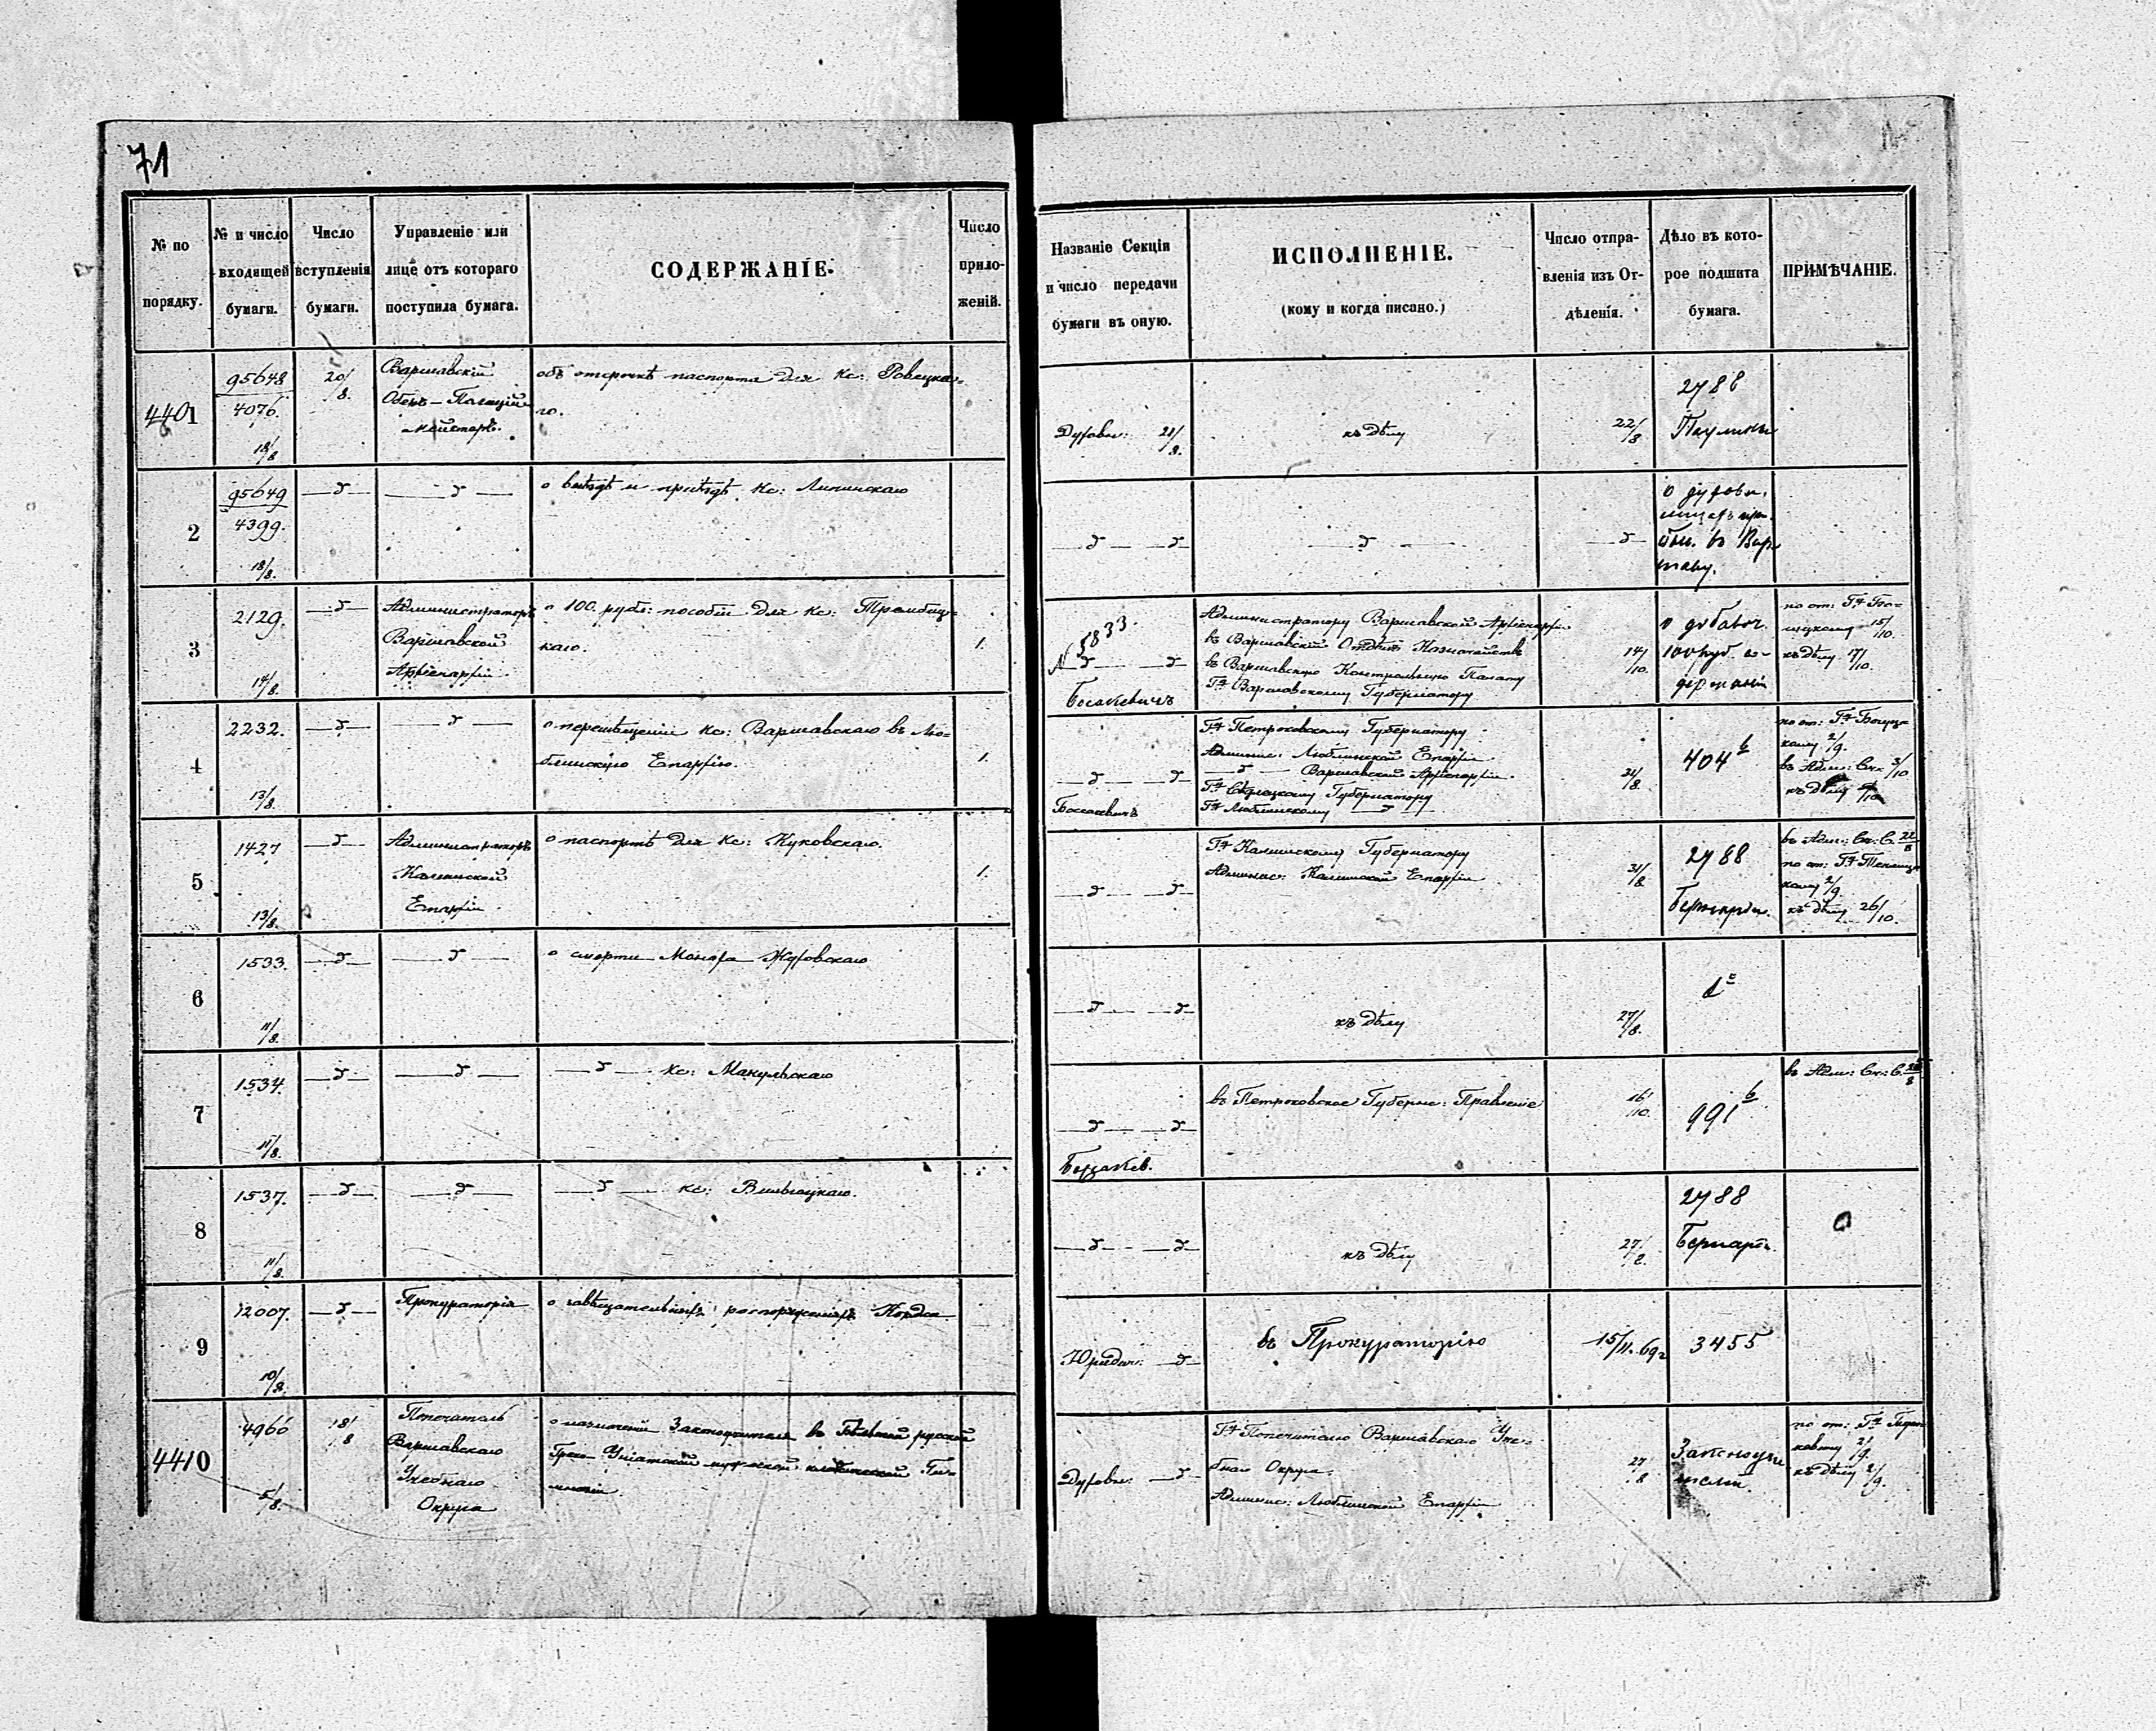 71
№ по порядку.
№ и число входящей бумаги.
Число вступленія бумаги.
Управленіе или лице отъ котораго поступила бумага.
СОДЕРЖАНІЕ.
Число приложеній.
Названіе Секціи и число передачи бумаги въ оную.
ИСПОЛНЕНІЕ.
(кому и когда писано.)
Число отправленія изъ Отдѣленія.
Дѣло въ которое подшита бумага.
ПРИМѢЧАНІЕ.
4401
95648
4076.
18/8
20/8.
Варшавскій
Оберъ-Полицій-
мейстеръ.
объ отсрочкѣ паспорта для Кс:
го.
Духовн: 21/8.
къ дѣлу
22/8
2788
Паулины
2
95649
4399.
18/8.
о выѣздѣ и пріѣздѣ Кс: Липинскаго
о духовн.
лицахъ
въ Вар-
шаву.
3
2129.
14/8.
Администраторъ
Варшавской
Архіепархіи
о 100 рубл: пособіи для Кс: Трембиц-
каго.
1.
№ 5833.
Администратору Варшавской Архіепархіи
въ Варшавскій Отдѣлъ Казначейства
въ Варшавскую Контрольную Палату
Гну Варшавскому Губернатору
14/10.
о добавоч.
100 руб. со-
держаніи
по от: Гну
15/10.
къ дѣлу 17/10.
4
2232.
13/8.
о перемѣщеніи Кс: Варшавскаго въ Лю-
блинскую Епархію.
1.
Гну Петроковскому Губернатору
Админис: Люблинской Епархіи
Варшавской Архіепархіи.
Гну Сѣдлецкому Губернатору
Гну Люблинскому
31/8.
404 b
по от: Гну
кому 2/9.
въ Адм: Сек: 3/10
къ дѣлу
5
1427
13/8.
Администраторъ
Калишской
Епархіи.
о паспортѣ для Кс: Куковскаго.
1.
Гну Калишскому Губернатору
Админис: Калишской Епархіи
31/8
2788
въ Адм: Сек: С. 22/8
по от: Гну
кому 2/9.
къ дѣлу 26/10.
6
1533.
11/8.
о смерти
къ дѣлу
27/8.
7
1534.
11/8.
Кс: Макульскаго
въ Петроковское Губерн: Правленіе
16/10.
991 b
въ Адм: Сек: С.
8
1537.
11/8.
Кс:
къ дѣлу
27/8.
2788
Бернард.
9
12007.
10/8.
Прокураторія
о завѣщательныхъ распоряженіяхъ
Юридич:
въ Прокураторію
15/11. 69 г
3455
4410
4960
5/8.
18/8
Попечитель
Варшавскаго
Учебнаго
Округа
о назначеніи Законоучителя въ Бѣльской русской
Греко-Уніатской мужской классической Гим-
назіи.
Духовн:
Гну Попечителю Варшавскаго Уче-
бнаго Округа.
Админис: Люблинской Епархіи
27/8
Законоучи-
телей.
по от: Гну
къ дѣлу 2/9.